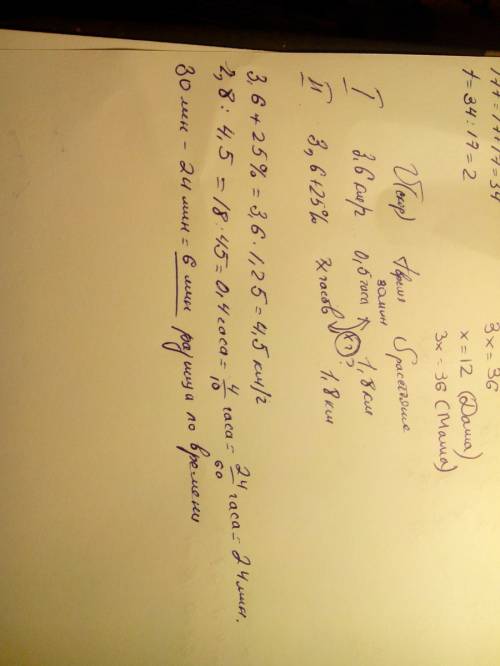 3x = 36
x = 12 (Даша)
3x = 36 (Маша)
17t = 17+17 = 34
t = 34 : 17 = 2
V(скор) Время S расстояние
I 3,6 км/ч 0,5 часа 30 мин 1,8 км
II 3,6+25% x часов x ч ? 1,8 км
3,6 + 25% = 3,6 · 1,25 = 4,5 км/ч
1,8 : 4,5 = 18 : 45 = 0,4 часа = 4/10 часа = 24/60 часа = 24 мин.
30 мин - 24 мин = 6 мин разница по времени